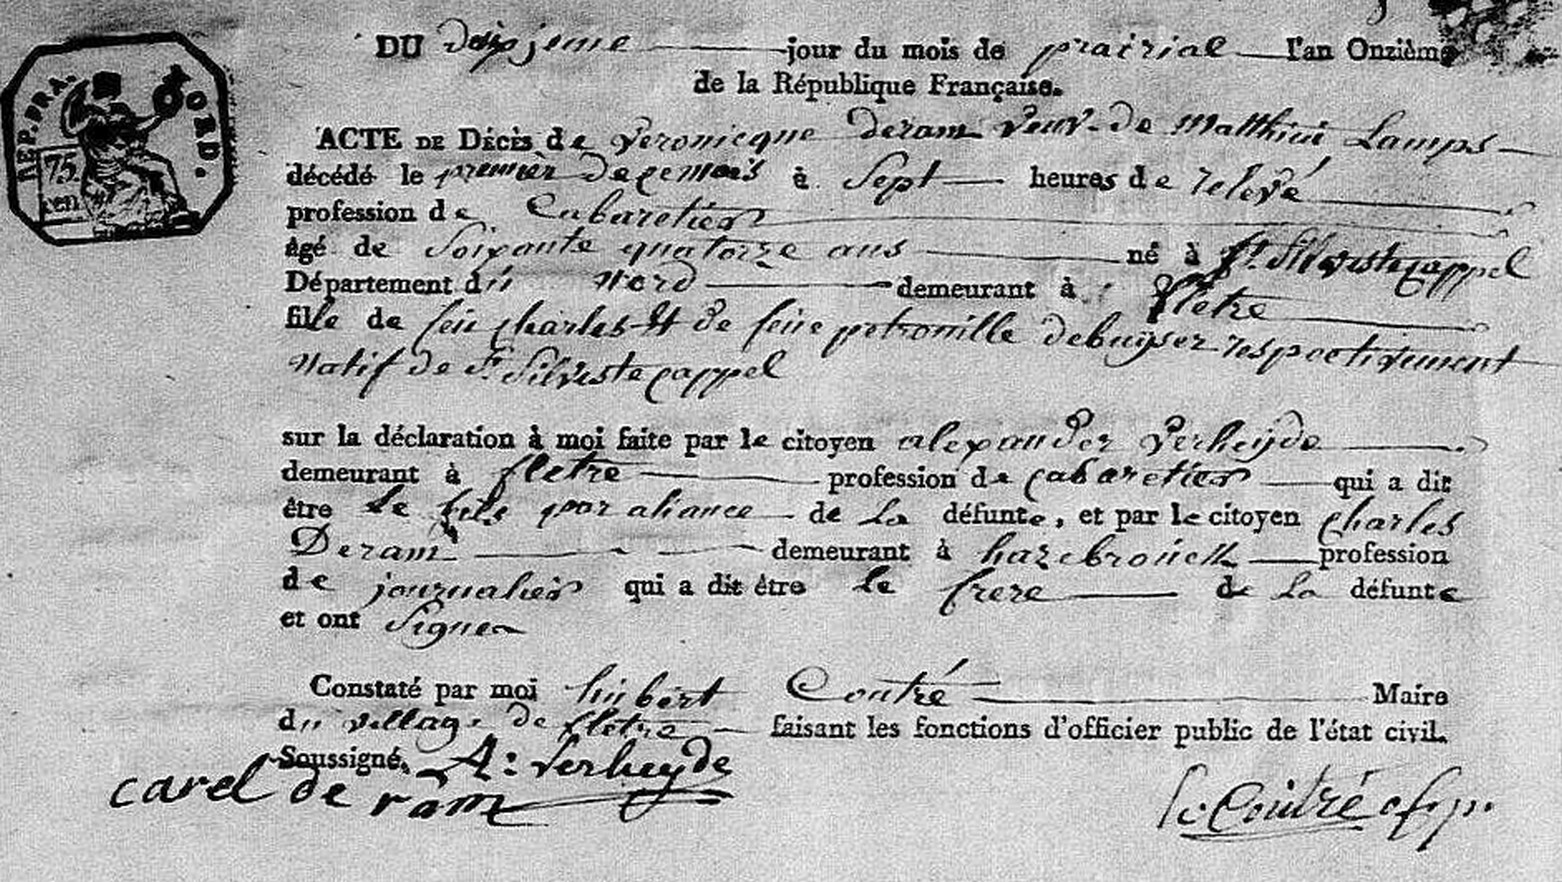 REP. FRA. NORD.
75.
cen
DU deuxjeme jour du mois de prairial l'an Onzième
de la République Française.
ACTE DE Décès de Veronicque Deram veuv. de Matthieu Lamps
décédé le premier de ce mois à Sept heures de relevé
profession de Cabaretier
âgé de Soixante quatorze ans né à St. Silvestecappel
Département du Nord demeurant à fletre
fille de feu charles et de feue petronille debuyser respectivement
natif de St. Silvestecappel
sur la déclaration à moi faite par le citoyen alexander Verheyde
demeurant à fletre profession de cabaretier qui a dit
être le fils par aliance de La défunte, et par le citoyen charles
Deram demeurant à hazebrouck profession
de journalier qui a dit être le frere de La défunte
et ont Signer
Constaté par moi hubert Contré Maire
du village de fletre faisant les fonctions d'officier public de l'état civil.
Soussigné. A: Verheyde
carel de ram
Contré ofp.